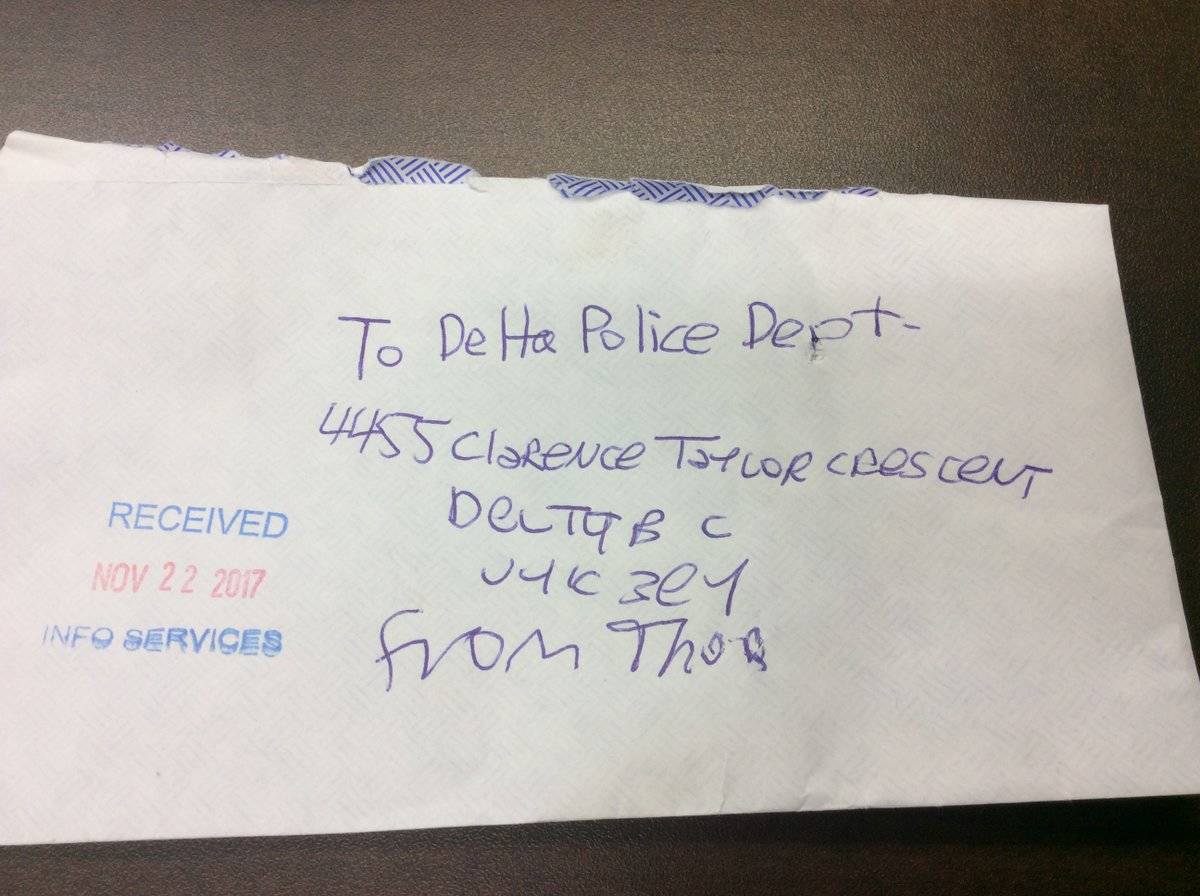 To Delta Police Dept.
4455 Clarence Taylor Crescent
Delta B C
V4K 3E1
From Thoa
RECEIVED
NOV 22 2017
INFO SERVICES